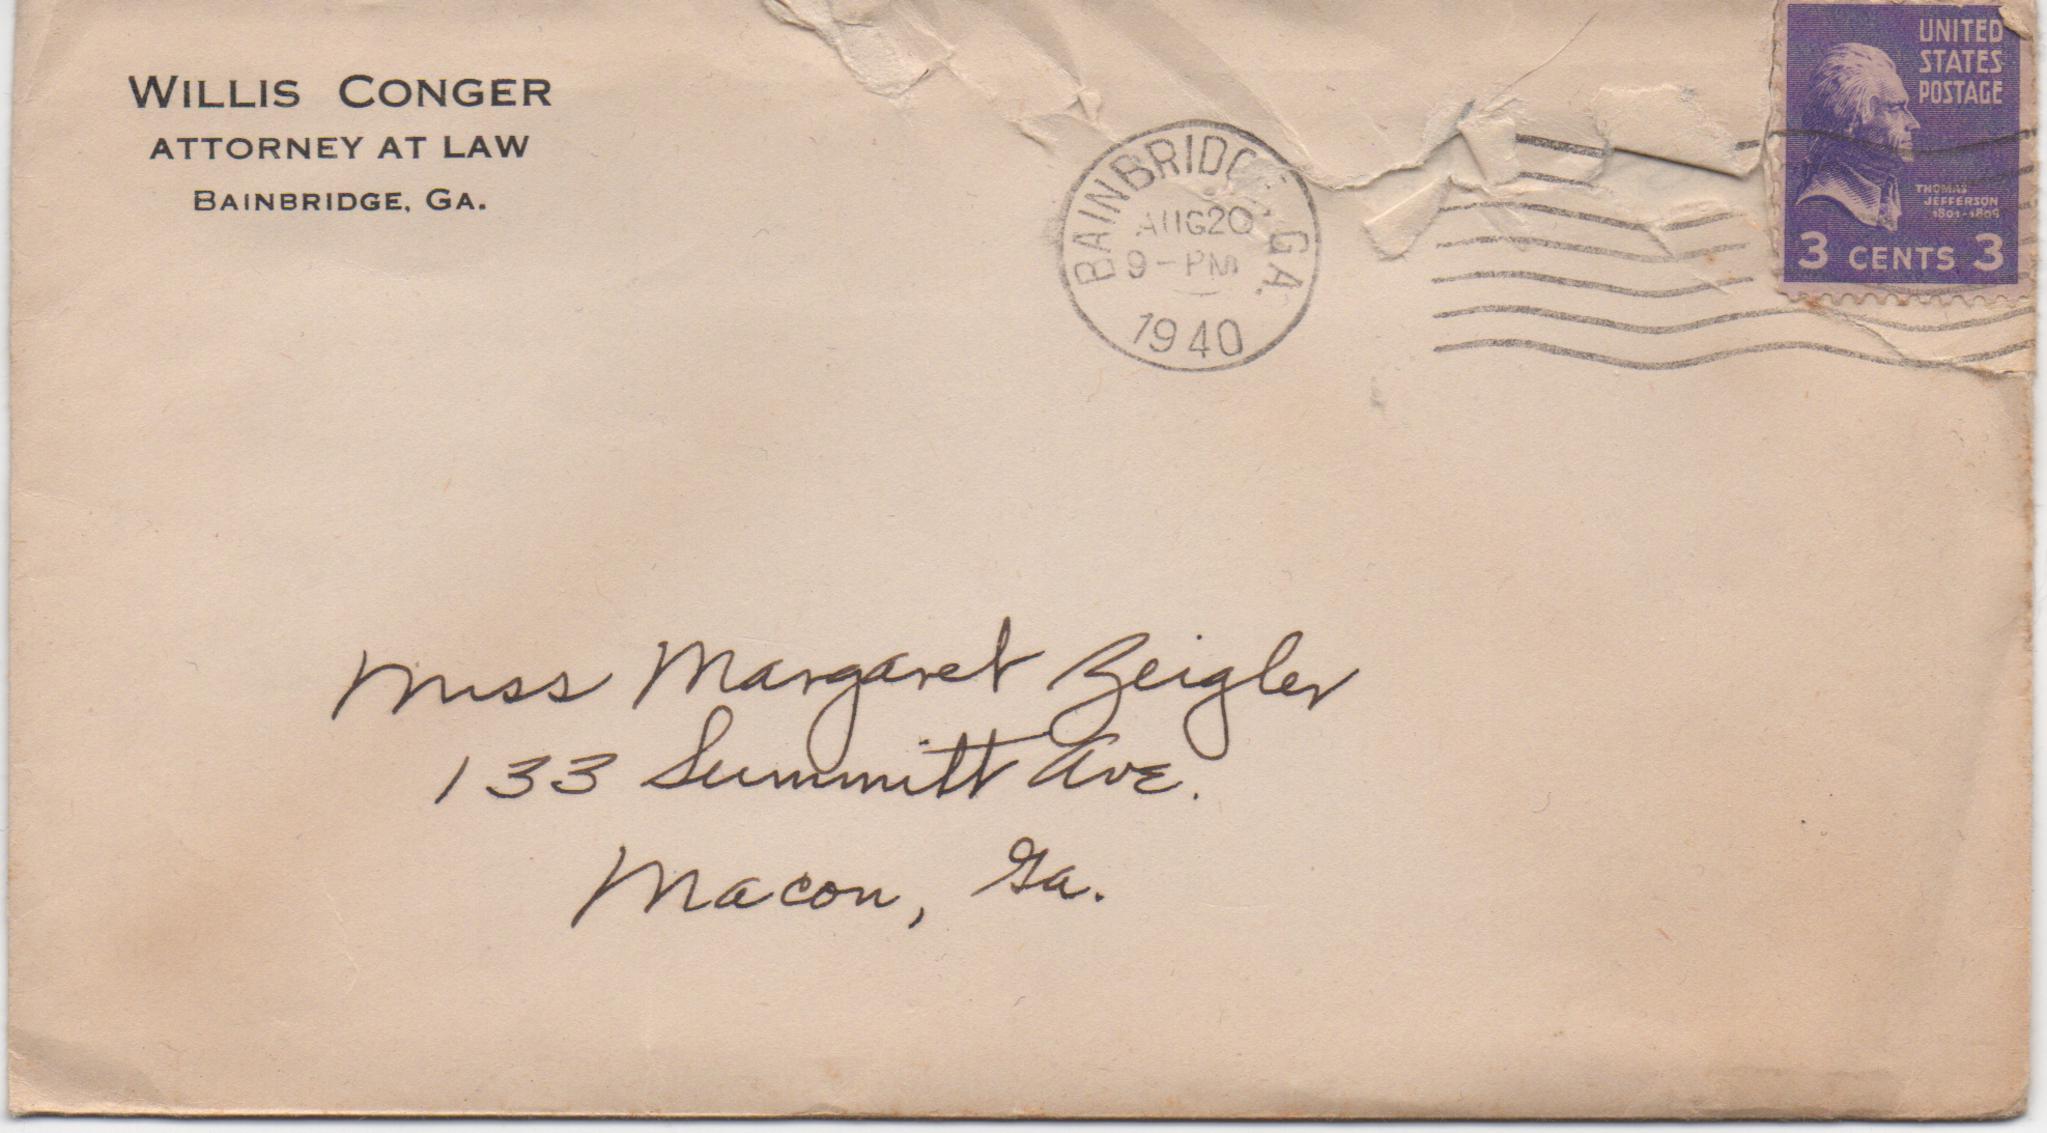 WILLIS CONGER
ATTORNEY AT LAW
BAINBRIDGE, GA.
BAINBRIDGE, GA.
AUG 20
9-PM
1940
UNITED
STATES
POSTAGE
THOMAS
JEFFERSON
1801-1809
3 CENTS 3
Miss Margaret Zeigler
133 Summitt Ave.
Macon, Ga.